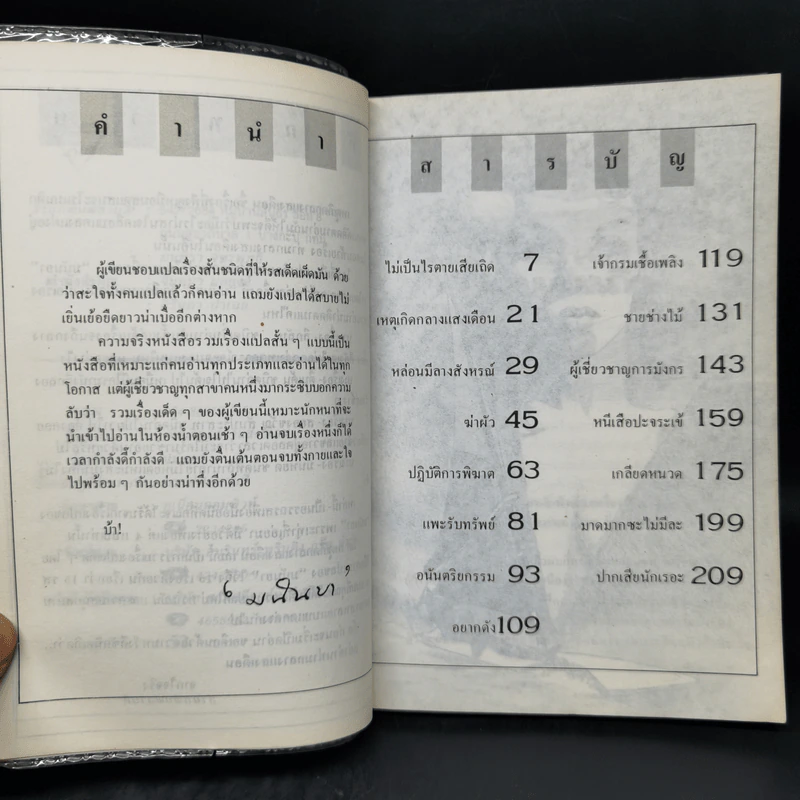 คำนำ
ผู้เขียนชอบแปลเรื่องสั้นชนิดที่ให้รสเด็ดเผ็ดมัน ด้วย
ว่าสะใจทั้งคนแปลแล้วก็คนอ่าน แถมยังแปลได้สบายไม่
เยิ่นเย้อยืดยาวน่าเบื่ออีกต่างหาก
ความจริงหนังสือรวมเรื่องแปลสั้น ๆ แบบนี้เป็น
หนังสือที่เหมาะแก่คนอ่านทุกประเภทและอ่านได้ในทุก
โอกาส แต่ผู้เชี่ยวชาญทุกสาขาคนหนึ่งมากระซิบบอกความ
ลับว่า รวมเรื่องเด็ด ๆ ของผู้เขียนนี้เหมาะนักหนาที่จะ
นำเข้าไปอ่านในห้องน้ำตอนเช้า ๆ อ่านจบเรื่องหนึ่งก็ได้
เวลากำลังดี๊กำลังดี แถมยังตื่นเต้นตอนจบทั้งกายและใจ
ไปพร้อม ๆ กันอย่างน่าทึ่งอีกด้วย
บ้า!
สารบัญ
ไม่เป็นไรตายเสียเถิด 7
เหตุเกิดกลางแสงเดือน 21
หล่อนมีลางสังหรณ์ 29
ฆ่าผัว 45
ปฏิบัติการพิฆาต 63
แพะรับทรัพย์ 81
อนันตริยกรรม 93
อยากดัง 109
เจ้ากรมเชื้อเพลิง 119
ชายช่างไม้ 131
ผู้เชี่ยวชาญการมังกร 143
หนีเสือปะจระเข้ 159
เกลียดหนวด 175
มาดมากซะไม่มีละ 199
ปากเสียนักเรอะ 209